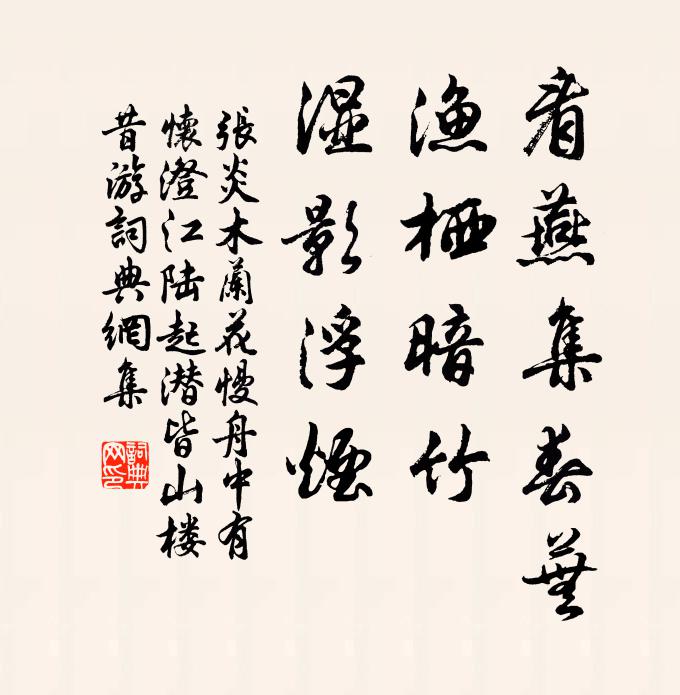 看燕集春蕪
漁栖暗竹
湿影浮煙
張炎木蘭花慢舟中有
懷澄江陆起潜皆山楼
昔游詞典網集
詞典網印